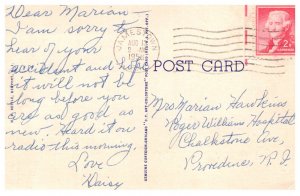 Dear Marian
I am sorry to
hear of your
accident and hope
it will not be
long before you
are as good as
new. Heard it on
radio this morning.
Love
Daisy
AUG
POST CARD
2¢
Mrs Marian Hawkins
Roger Williams Hospital
Chalkstone Ave,
Providence, R. I